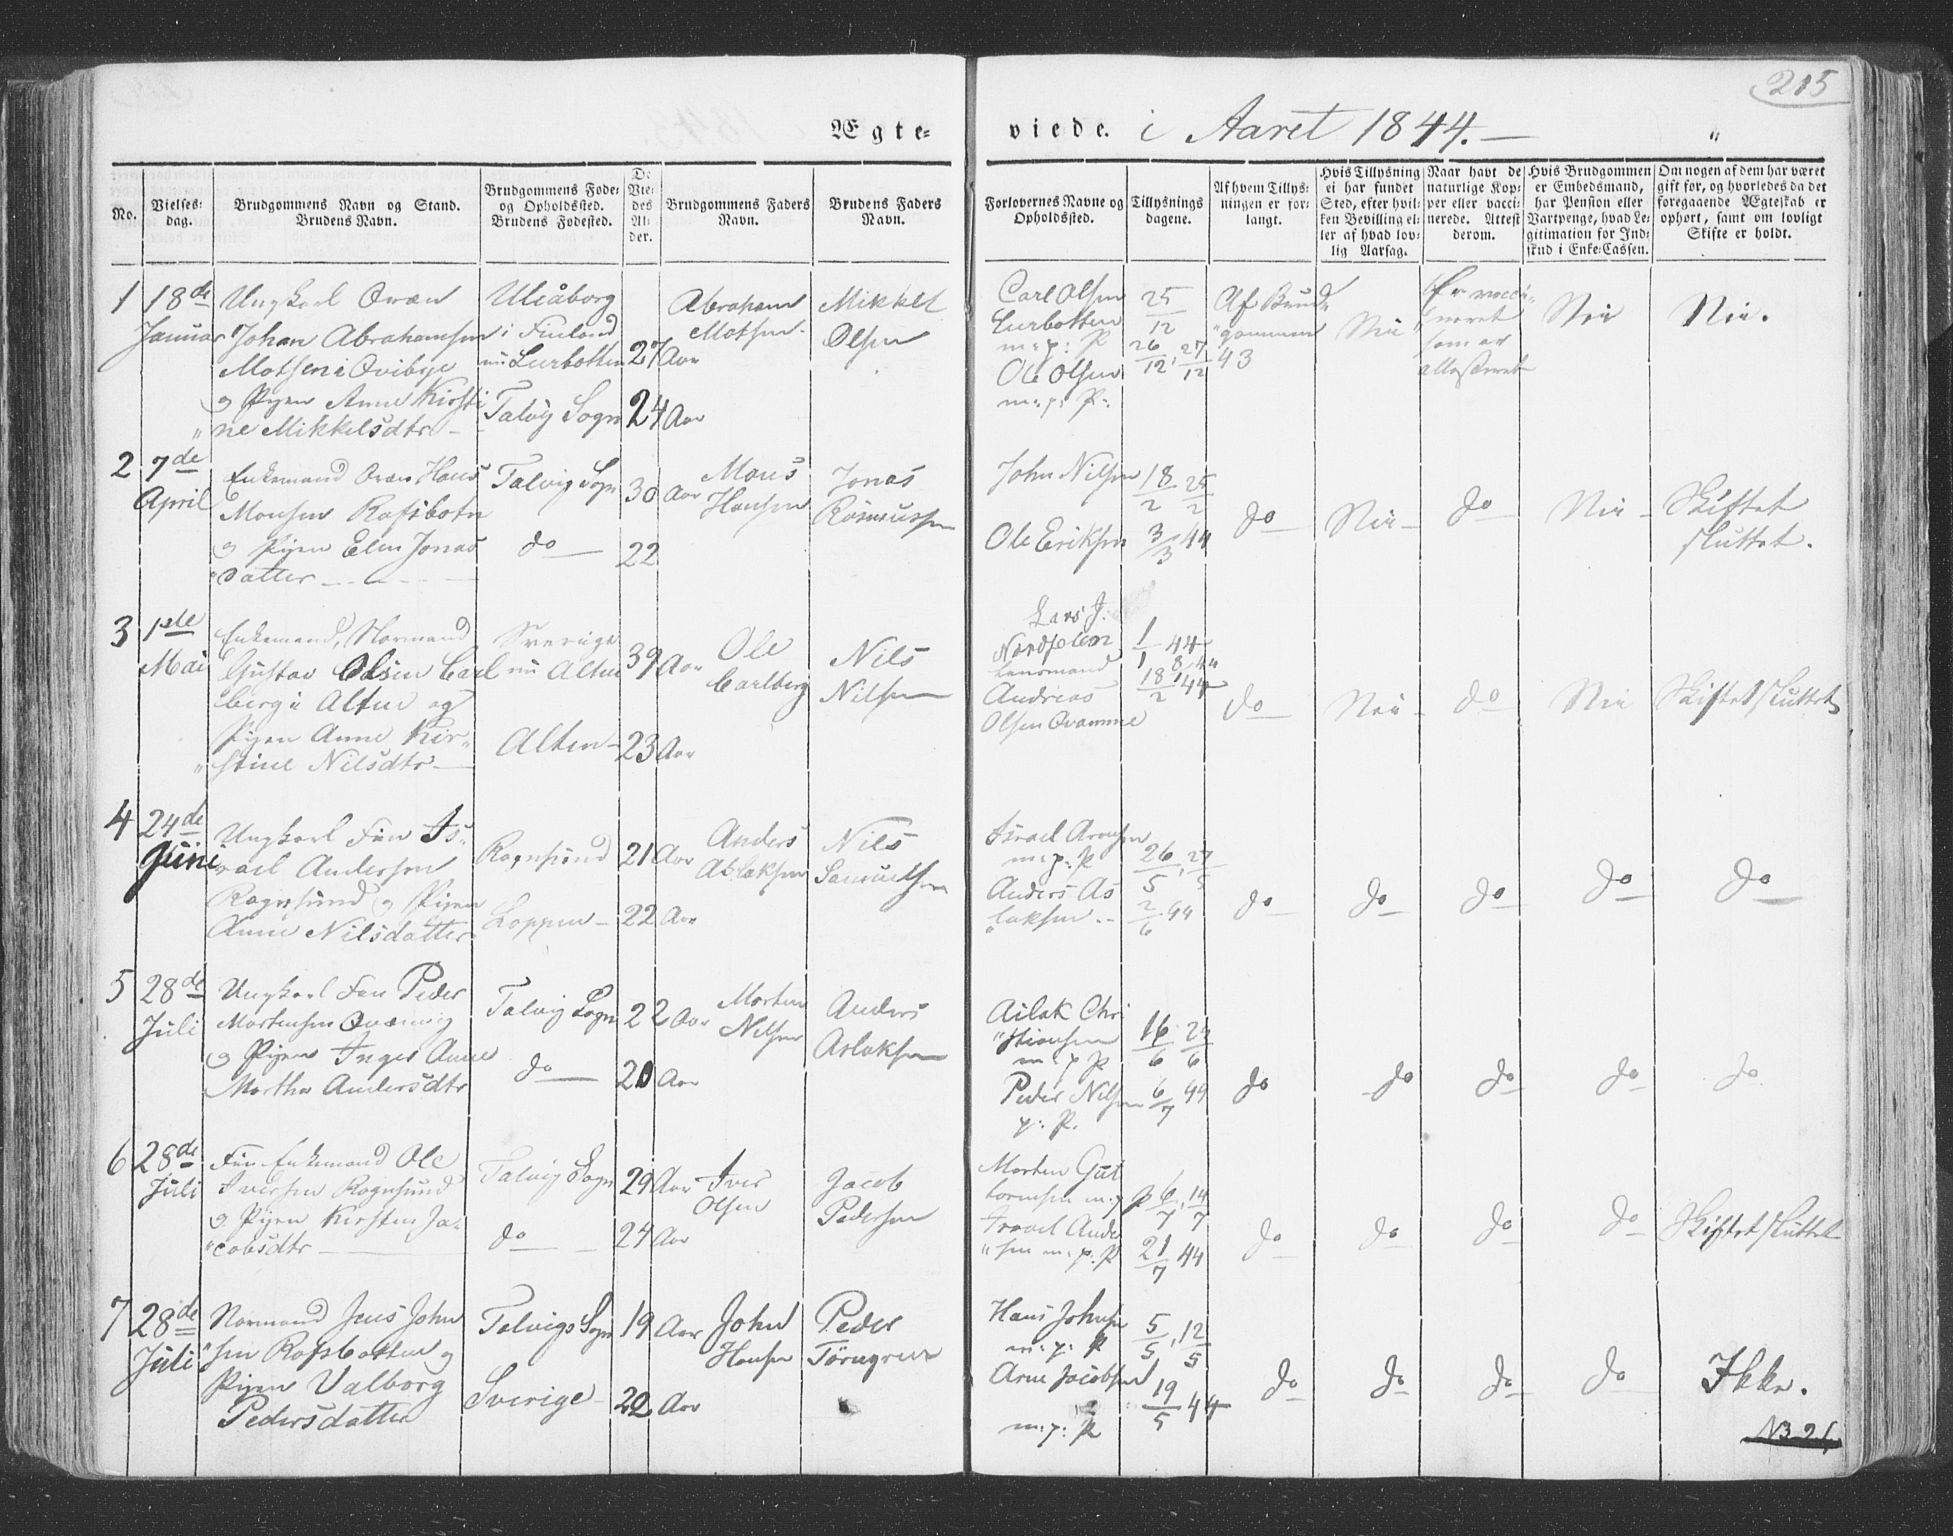 215
Ægte-
viede. i Aaret 1844.
No.
Vielses-
dag.
Brudgommens Navn og Stand.
Brudens Navn.
Brudgommens Føde-
og Opholdssted.
Brudens Fødested.
De
Vie-
des
Al-
der.
Brudgommens Faders
Navn.
Brudens Faders
Navn.
Forlovernes Navne og
Opholdssted.
Tillysnings
dagene.
Af hvem Tillys-
ningen er for-
langt.
Hvis Tillysning
ei har fundet
Sted, efter hvil-
ken Bevilling el-
ler af hvad lov-
lig Aarsag.
Naar havt de
naturlige Kop-
per eller vacci-
nerede. Attest
derom.
Hvis Brudgommen
er Embedsmand,
har Pension eller
Vartpenge, hvad Le-
gitimation for Ind-
skud i Enke-Cassen.
Om nogen af dem har været
gift før, og hvorledes da det
foregaaende Ægteskab er
ophørt, samt om lovligt
Skifte er holdt.
1
18de
Januar
Ungkarl Qvæn
Johan Abrahamsen
Motsen i Qvibye
og Pigen Anne Kirsti
ne Mikkelsdtr
Uleåborg
i Finland
nu Lerbotten
Talvig Sogn
27 Aar
24 Aar
Abraham
Motsen
Mikkel
Olsen
Carl Olsen
Lerbotten
m: p: P
Ole Olsen
m: p: P:
25/12
26/12, 27/12 43
Af Brud-
gommen
Nei
Er vacci-
neret
som er
attesteret
Nei
Nei.
2
7de
April
Enkemand Qvæn Hans
Monsen Rafsbotn
og Pigen Elen Jonas
datter
Talvig Sogn
do
30 Aar
22
Mons
Hansen
Jonas
Rasmussen
John Nilsen
Ole Eriksen
18/2 25/2
3/3 44
do
Nei
do
Nei
Skiftet
sluttet.
3
1ste
Mai
Enkemand, Normand
Gustav Olsen Carl
berg i Alten og
Pigen Anne Kir-
stine Nilsdtr
Sverige
nu Alten
Alten
39 Aar
23 Aar
Ole
Carlberg
Nils
Nilsen
Lars J.
Lensmand
Andreas
Olsen Qvamme
18/2 44
do
Nei
do
Nei
Skiftet sluttet
4
24de
Juni
Ungkarl Fin Is-
rael Andersen
Rognsund og Pigen
Anne Nilsdatter
Rognsund
Loppen
21 Aar
22 Aar
Anders
Aslaksen
Nils
Samuelsen
Israel Arnesen
m: p: P
Anders As
laksen
26/5, 27/5
2/6 44
do
do
do
do
do
5
28de
Juli
Ungkarl Fin Peder
Mortensen Qvænvig
og Pigen Inger Anne
Martha Andersdtr
Talvig Sogn
do
22 Aar
20 Aar
Morten
Nilsen
Anders
Aslaksen
Ailak Chri
stiansen
m p P
Peder Nilsen
p: P.
16/6 23/6
6/7 44
do
do
do
do
do
6
28de
Juli
Fin Enkemand Ole
Iversen Rognsund
og Pigen Kirsten Ja-
cobsdtr
Talvig Sogn
do
29 Aar
24 Aar
Iver
Olsen
Jacob
Pedersen
Morten Gut
tormsen m: p P
Israel Ander
sen m: p: P
6/7, 14/7
21/7 44
do
do
do
do
Skiftet sluttet
7
28de
Juli
Normand Jens John
sen Rafsbotten og
Pigen Valborg
Pedersdatter
Talvigs Sogn
Sverige
19 Aar
22 Aar
John
Hansen
Peder
Törngren
Hans Johnsen
m: p: P
Arne Jacobsen
m: p: P
5/5, 12/5
19/5 44
do
do
do
do
Ikke.